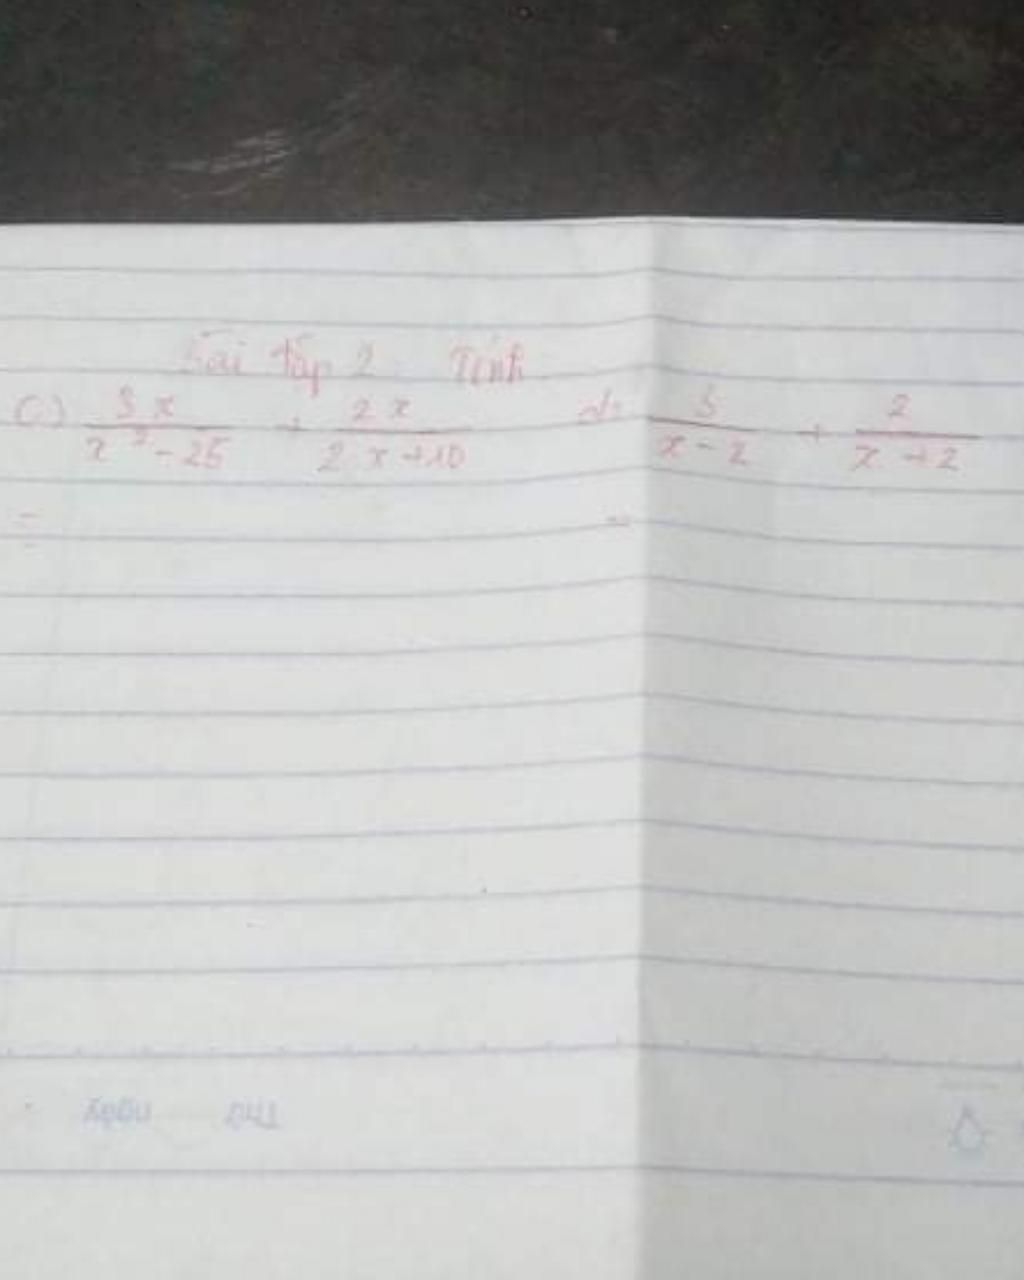 Bài tập 2 Tính
c) 3x / x² - 25 + 2x / 2x + 10 d) 3 / x - 2 + 2 / x + 2
= =
Thứ ngày